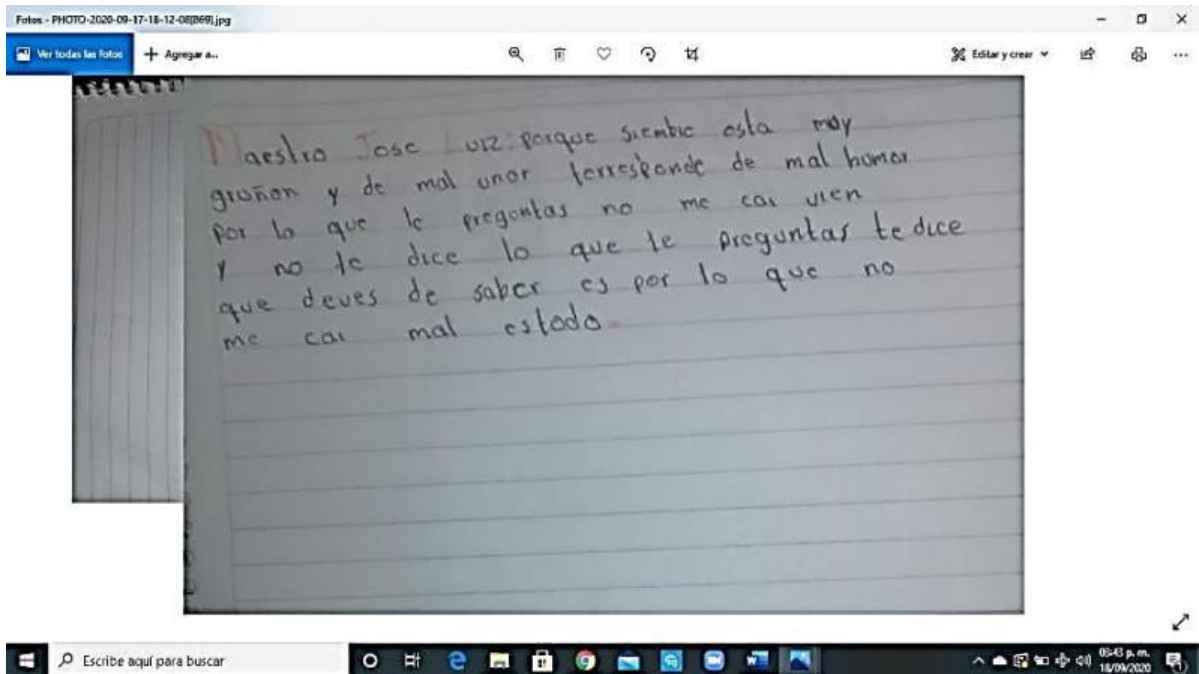 Fotos - PHOTO-2020-09-17-18-12-08[869].jpg
Ver todas las fotos
Agregar a...
Editar y crear
Maestro Jose Luiz: porque siembre esta moy
gruñon y de mal unor terresponde de mal homor
por lo que le preguntas no me cai vien
y no te dice lo que le preguntas te dice
que deves de saber es por lo que no
me cai mal estodo.
Escribe aquí para buscar
05:43 p. m.
18/09/2020